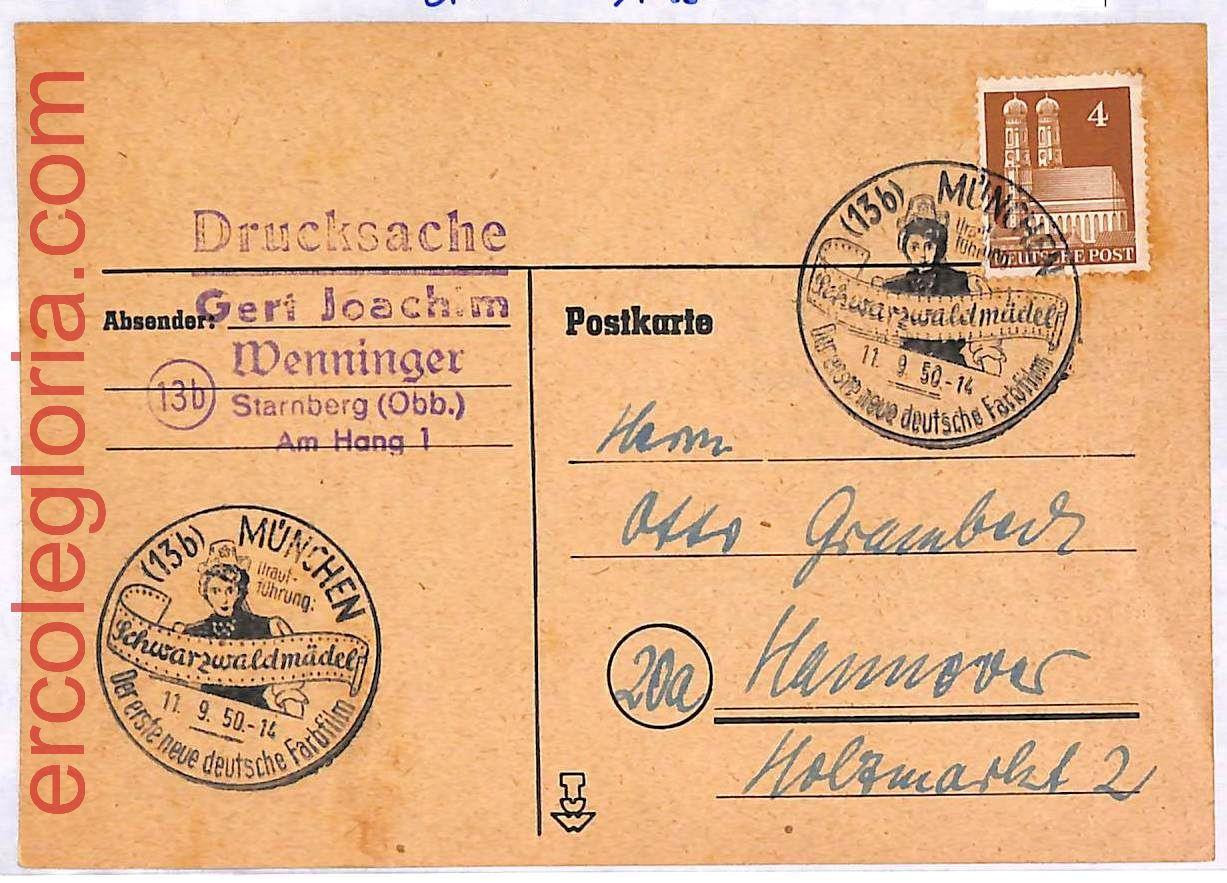 ercolegloria.com
4
DEUTSCHE POST
(13b) MÜNCHEN
Urauf-
führung:
Schwarzwaldmädel
11. 9. 50.-14
Der erste neue deutsche Farbfilm
Drucksache
Absender:
Gert Joachim
Wenninger
13b
Starnberg (Obb.)
Am Hang 1
Postkarte
Herrn
Otto Grambeck
20a Hannover
Holzmarkt 2
(13b) MÜNCHEN
Urauf-
führung:
Schwarzwaldmädel
11. 9. 50.-14
Der erste neue deutsche Farbfilm